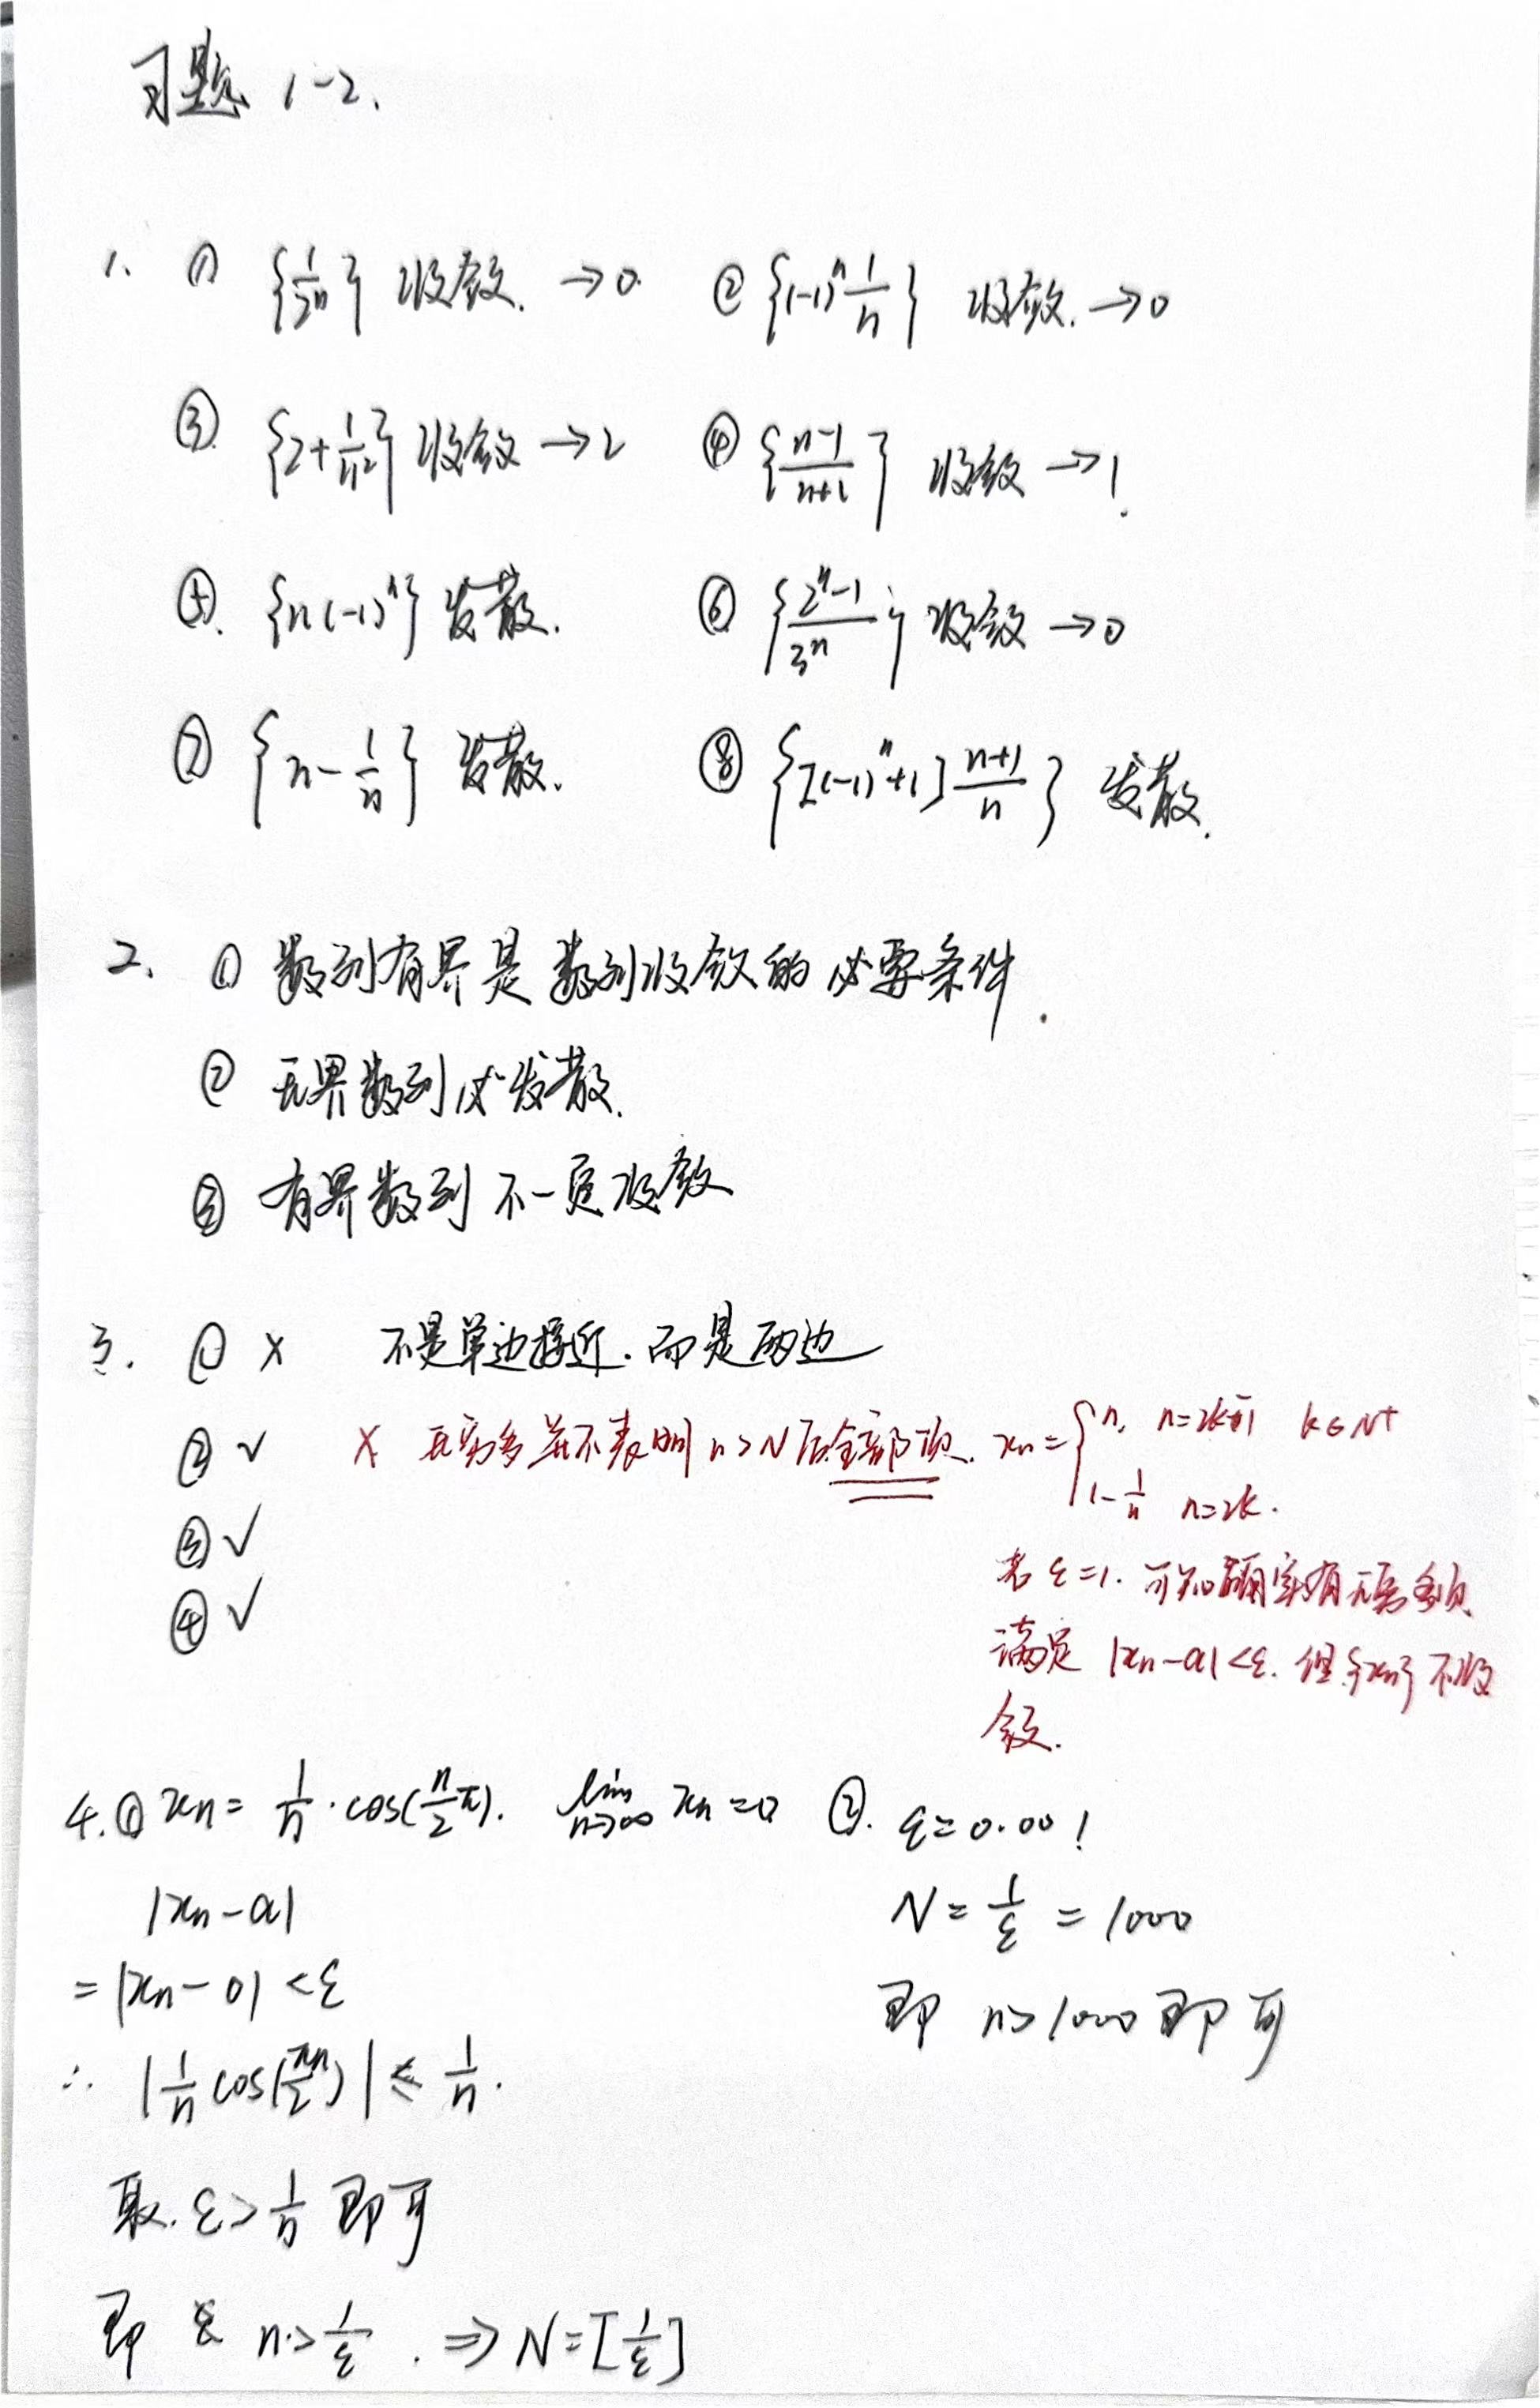 习题 1-2.
1. ① {1/2ⁿ} 收敛. →0. ② {(-1)ⁿ 1/n} 收敛. →0
③ {2+1/n²} 收敛 →2 ④ {(n-1)/(n+1)} 收敛 →1.
⑤. {n(-1)ⁿ} 发散. ⑥ {(2ⁿ-1)/3ⁿ} 收敛 →0
⑦ {n-1/n} 发散. ⑧ {[(-1)ⁿ+1] (n+1)/n} 发散.
2. ① 数列有界是数列收敛的必要条件.
② 无界数列必发散.
③ 有界数列不一定收敛
3. ① × 不是单边接近.而是两边
② √ × 无穷多并不表明 n>N 后全部项. xn = { n, n=2k-1 k∈N+
1-1/n n=2k.
③ √
若 ε=1. 可知确实有无穷多项
④ √
满足 |xn-a|<ε. 但{xn}不收
敛.
4.① xn = 1/n · cos(n/2 π). lim n→∞ xn=0 ②. ε=0.001
|xn-a|
N = 1/ε = 1000
= |xn-0| <ε
即 n>1000 即可
∴ |1/n cos(πn/2)| ≤ 1/n.
取. ε>1/n 即可
即 n>1/ε. ⇒ N=[1/ε]